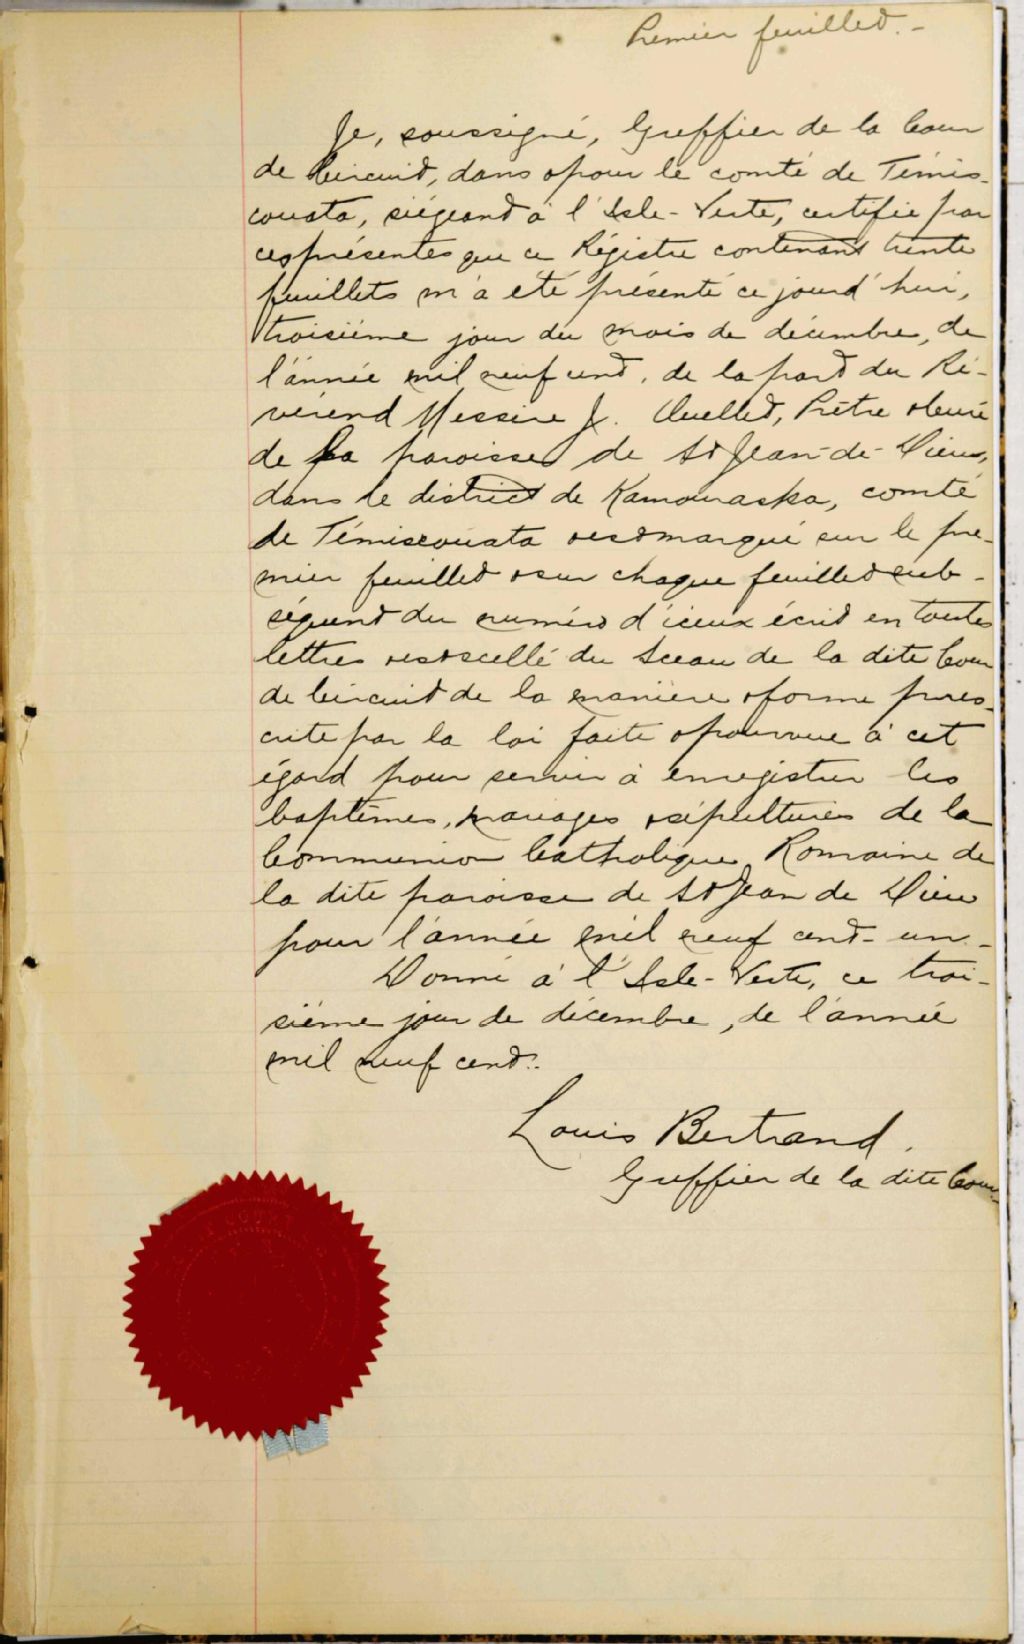 Premier feuillet.-
Je, soussigné, Greffier de la Cour
de Circuit, dans & pour le comté de Témis-
couata, siégeant à l'Isle-Verte, certifie par
ces présentes que ce Régistre contenant trente
feuillets m'a été présenté ce jourd'hui,
troisiéme jour du mois de décembre, de
l'année mil neuf cent, de la part du Ré-
vérend Messire J. Ouellet, Prêtre & Curé
de la paroisse de St Jean-de-Dieu,
dans le district de Kamouraska, comté
de Témiscouata & est marqué sur le pre-
mier feuillet & sur chaque feuillet sub-
séquent du numéro d'iceux écrit en toutes
lettres & est scellé du Sceau de la dite Cour
de Circuit de la maniere & forme pres-
crite par la loi faite & pourvue à cet
égard pour servir à enregistrer les
baptêmes, mariages & sépultures de la
Communion Catholique Romaine de
la dite paroisse de St Jean de Dieu
pour l'année mil neuf cent-un.-
Donné à l'Isle-Verte, ce troi-
siéme jour de décembre, de l'année
mil neuf cent.
Louis Bertrand.
Greffier de la dite Cour